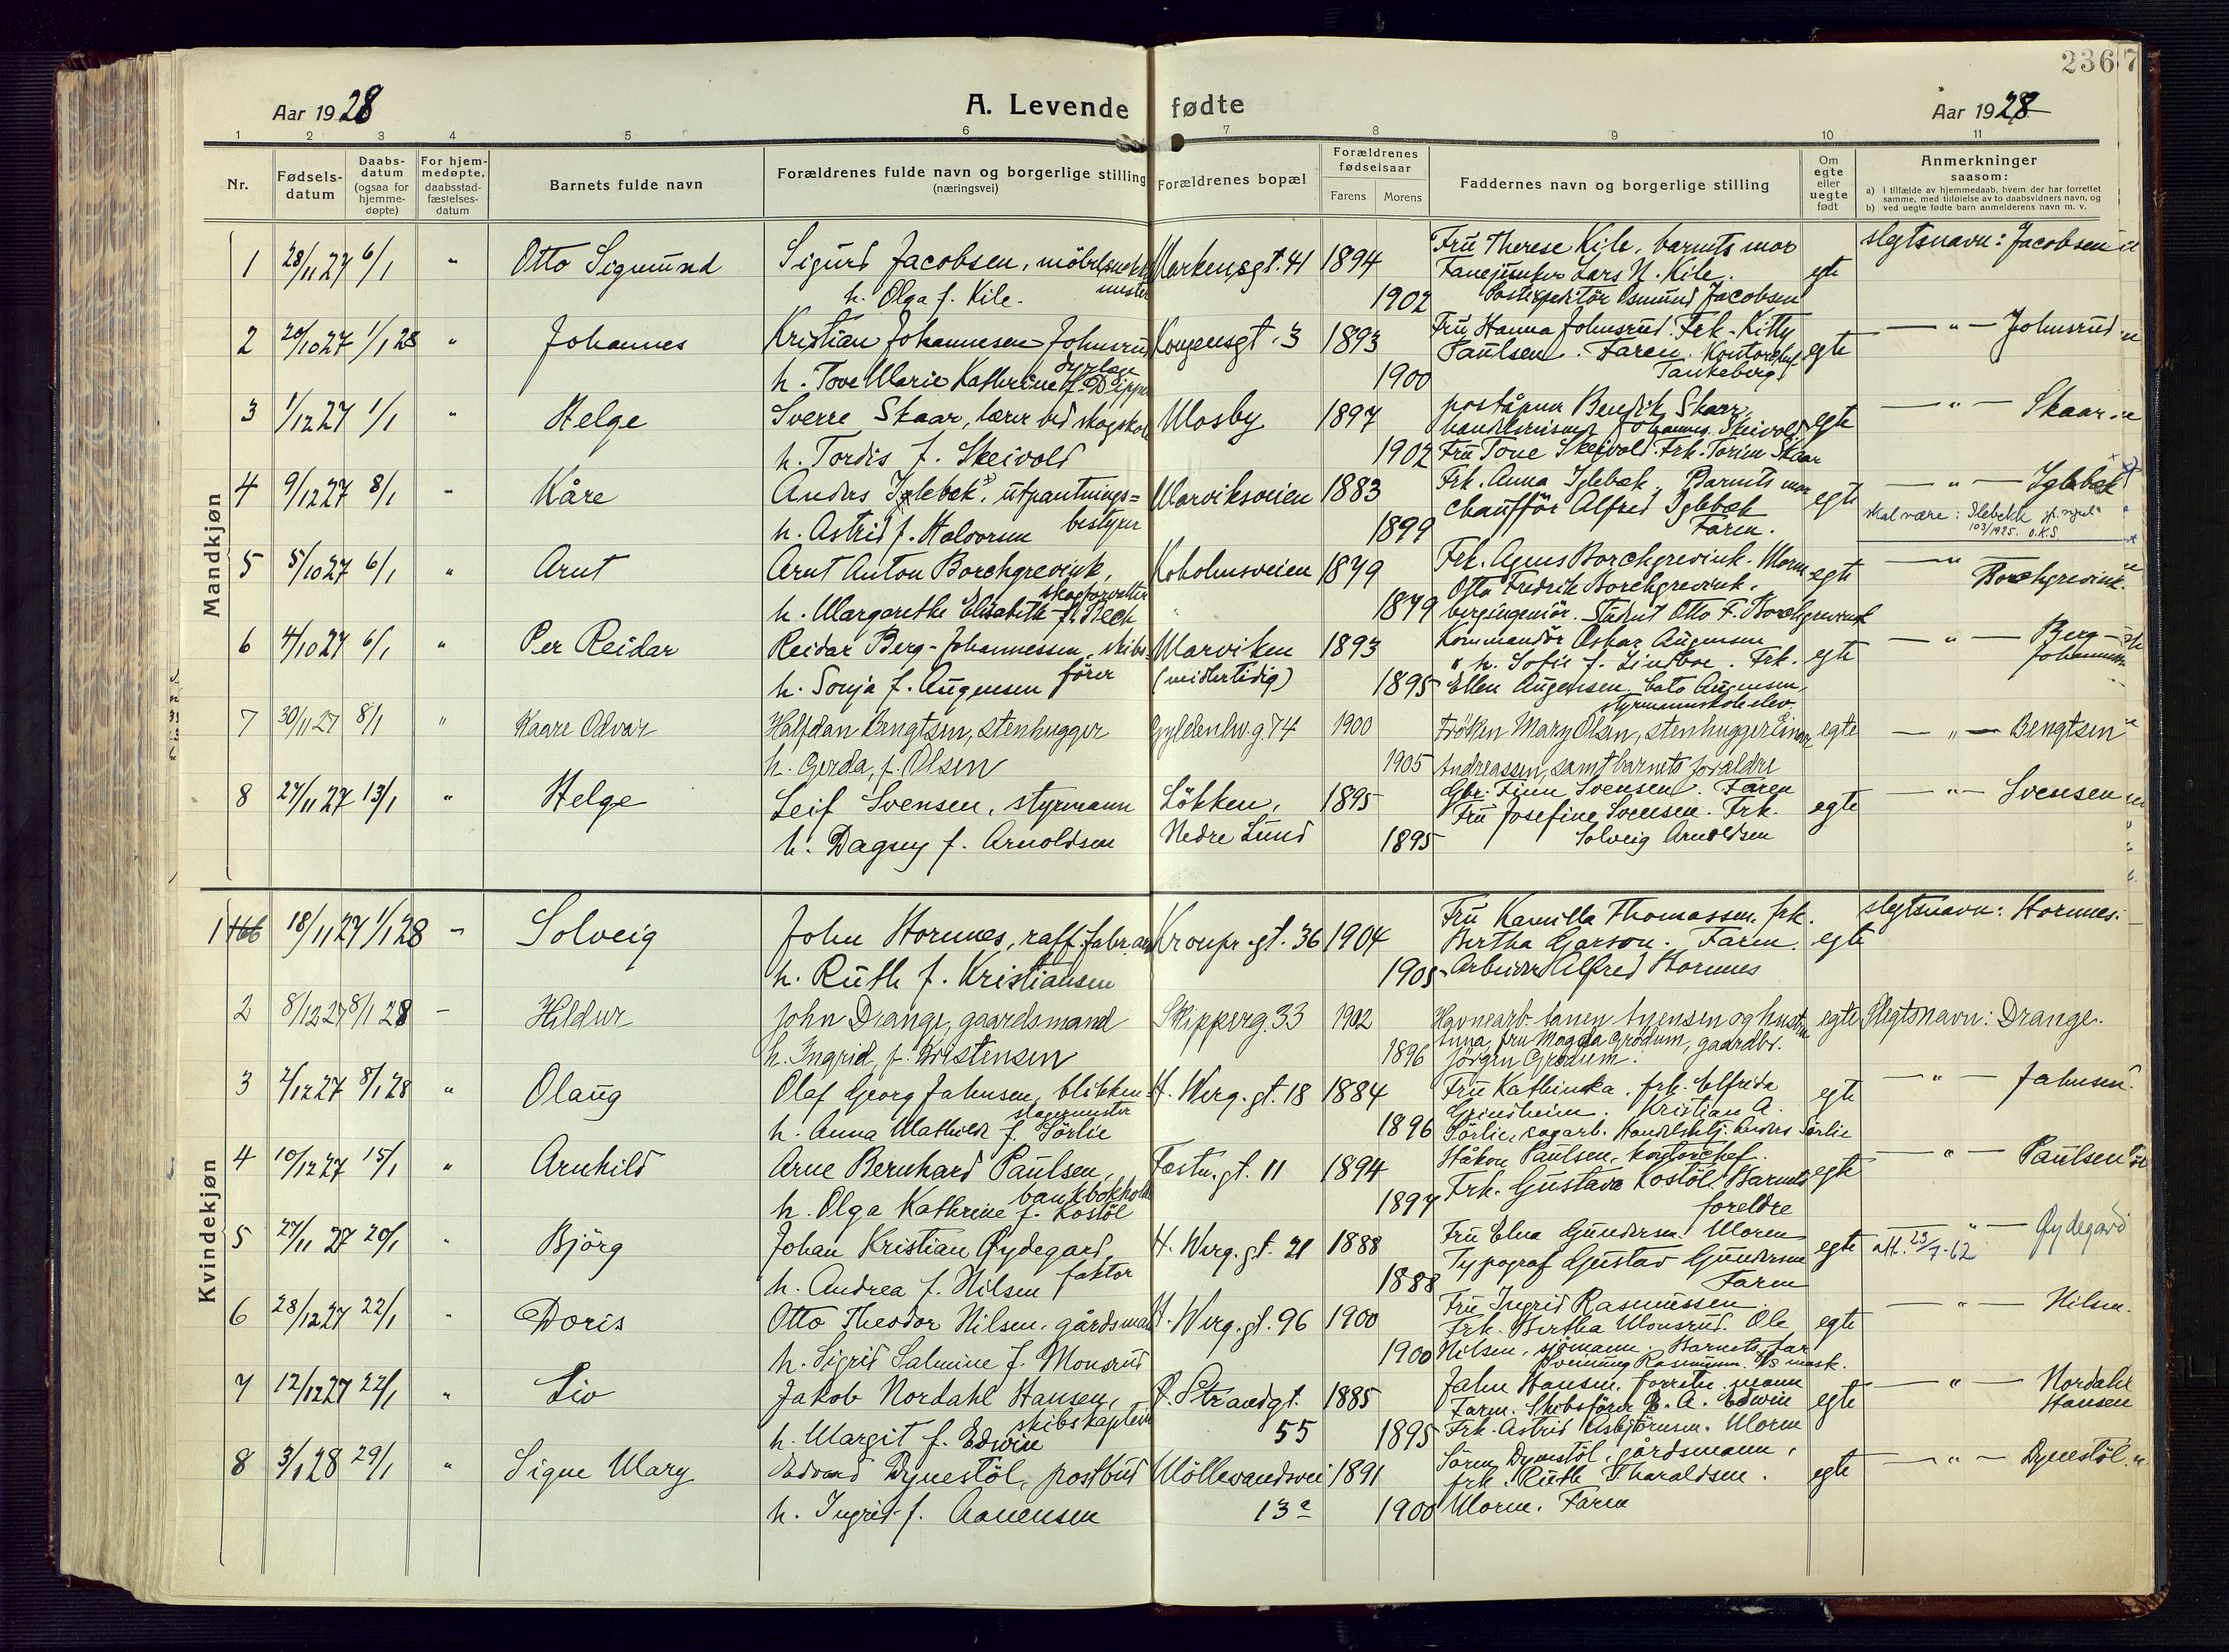 236
7
Aar 1928
A. Levende fødte
Aar 1928
1 2 3 4 5 6 7 8 9 10 11
Nr.
Fødsels-datum
Daabs-datum (ogsaa for hjemme-døpte)
For hjem-medøpte, daabsstad-fæstelses-datum
Barnets fulde navn
Forældrenes fulde navn og borgerlige stilling (næringsvei)
Forældrenes bopæl
Forældrenes fødselsaar
Farens
Morens
Faddernes navn og borgerlige stilling
Om egte eller uegte født
Anmerkninger saasom:
a) i tilfælde av hjemmedaab, hvem der har forrettet samme, med tilføielse av to daabsvidners navn, og
b) ved uegte fødte barn anmelderens navn m. v.
Mandkjøn
1 28/11 27 6/1 " Otto Sigmund Sigurd Jacobsen, möbelsnekkermester Markensgt. 41 1894 Fru Therese Kile, barnets mor egte slegtsnavn: Jacobsen
h. Olga f. Kile. 1902 Fanejunker Lars N. Kile.
Postexpeditör Osmund Jacobsen
2 20/10 27 1/1 28 " Johannes Kristian Johannesen Johnsrud Kongensgt. 3 1893 Fru Hanna Johnsrud. Frk. Kitty egte — " — Johnsrud
dyrlæge
h. Tove Marie Kathrine f. 1900 Paulsen. Faren. Kontorchef
Tankeberg
3 1/12 27 1/1 " Helge Sverre Skaar, lærer ved skogskole Mosby 1897 poståpner Bendik Skaar, egte — " — Skaar
h. Tordis f. Skeivold 1902 handelsreisende Johannes Skeivold
Fru Tone Skeivold. Frk. Torun Skaar
4 9/12 27 8/1 " Kåre Anders Iglebek, utpantnings= Marviksveien 1883 Frk. Anna Iglebæk. Barnets mor egte — " — Iglebæk
bestyrer
h. Astrid f. Halvorsen 1899 chaufför Alfred Iglebæk
Faren.
skal være: Ilebekk
103/1925. O.K.S.
5 5/10 27 6/1 " Arnt Arnt Anton Borchgrevink, Koholmsveien 1879 Frk. Agnes Borchgrevink. Moren egte — " — Borchgrevink.
skogforvalter
h. Margarethe Elisabeth f. Bech " 1879 Otto Fredrik Borchgrevink.
bergingeniör. Student Otto F. Borchgrevink
6 4/10 27 6/1 " Per Reidar Reidar Berg-Johannessen, skibs- Marviken 1893 Kommandör Oskar Augensen egte — " — Berg-
förer Johannessen
h. Sonja f. Augensen (midlertidig) 1895 " h. Sofie f. Lindboe. Frk.
Ellen Augensen. Cato Augensen,
styrmannskoleelev
7 30/11 27 8/1 " Kaare Odvar Halfdan Bengtsen, stenhugger Gyldenlw.g. 74 1900 Frøken Mary Olsen, stenhugger Einar egte — " — Bengtsen
h. Gerda, f. Olsen 1905 Andreassen, samt barnets forældre
8 27/11 27 13/1 " Helge Leif Svensen, styrmann Løkken, 1895 Gbr. Finn Svensen. Faren egte — " — Svensen
h. Dagny f. Arnoldsen Nedre Lund 1895 Fru Josefine Svensen. Frk.
Solveig Arnoldsen
Kvindekjøn
1 166 18/11 27 1/1 28 - Solveig John Hornnes, raff. fabr. arb Kronpr. gt. 36 1904 Fru Kamilla Thomassen, frk. egte slegtsnavn: Hornnes.
h. Ruth f. Kristiansen 1905 Bertha Garson. Faren.
Arbeider Alfred Hornnes
2 8/12 27 8/1 28 - Hildur John Drange, gaardsmand Skipperg. 33 1902 Havnearb. og hustru egte Slegtsnavn: Drange.
h. Ingrid, f. Kristensen 1896 Anna, fru Magda Grødum, gaardbr.
Jörgen Grødum.
3 2/12 27 8/1 28 " Olaug Olaf Georg Jahnsen, blikken- H. Werg. gt. 18 1884 Fru Kathinka. frk. Elfrida egte — " — Jahnsen.
slagermester
h. Anna Mathilde f. Sörlie 1896 Grindheim. Kristian A.
Sörlie, sagarb. Handelsbetj. Anders Sörlie
4 10/12 27 15/1 " Arnhild Arne Bernhard Paulsen, Festn. gt. 11 1894 Håkon Paulsen, kontorchef. egte — " — Paulsen
bankbokholder
h. Olga Kathrine f. Kostöl 1897 Frk. Gustava Kostöl. Barnets
foreldre
5 27/11 27 20/1 " Björg Johan Kristian Øydegard, H. Werg. gt. 21 1888 Fru Elna Gundersen. Moren egte — " — Øydegard
faktor
h. Andrea f. Nilsen 1888 Typograf Gustav Gundersen
Faren
att. 23/7-62
6 28/12 27 22/1 " Doris Otto Theodor Nilsen, gårdsmann H. Werg. gt. 96 1900 Fru Ingrid Rasmussen. egte — " — Nilsen.
h. Sigrid Salmine f. Monsrud 1900 Frk. Bertha Monsrud. Ole
Nilsen, sjömann. Barnets far
Rasmussen. mask.
7 12/12 27 22/1 " Liv Jakob Nordahl Hansen, Ø. Strandgt. 1885 Jahn Hansen. forretn. mann egte — " — Nordahl
skibskaptein Hansen
h. Margit f. Edwin 55 1895 Faren. Skibsförer E. A. Edwin
Frk. Astrid Asbjörnsen. Moren
8 3/1 28 29/1 " Signe Mary Edvard Dynestöl, postbud Möllevandsvei 1891 Sören Dynestöl, gårdsmann, egte — " — Dynestöl.
h. Ingrid f. Aanensen 13a 1900 frk. Ruth Tharaldsen.
Moren. Faren